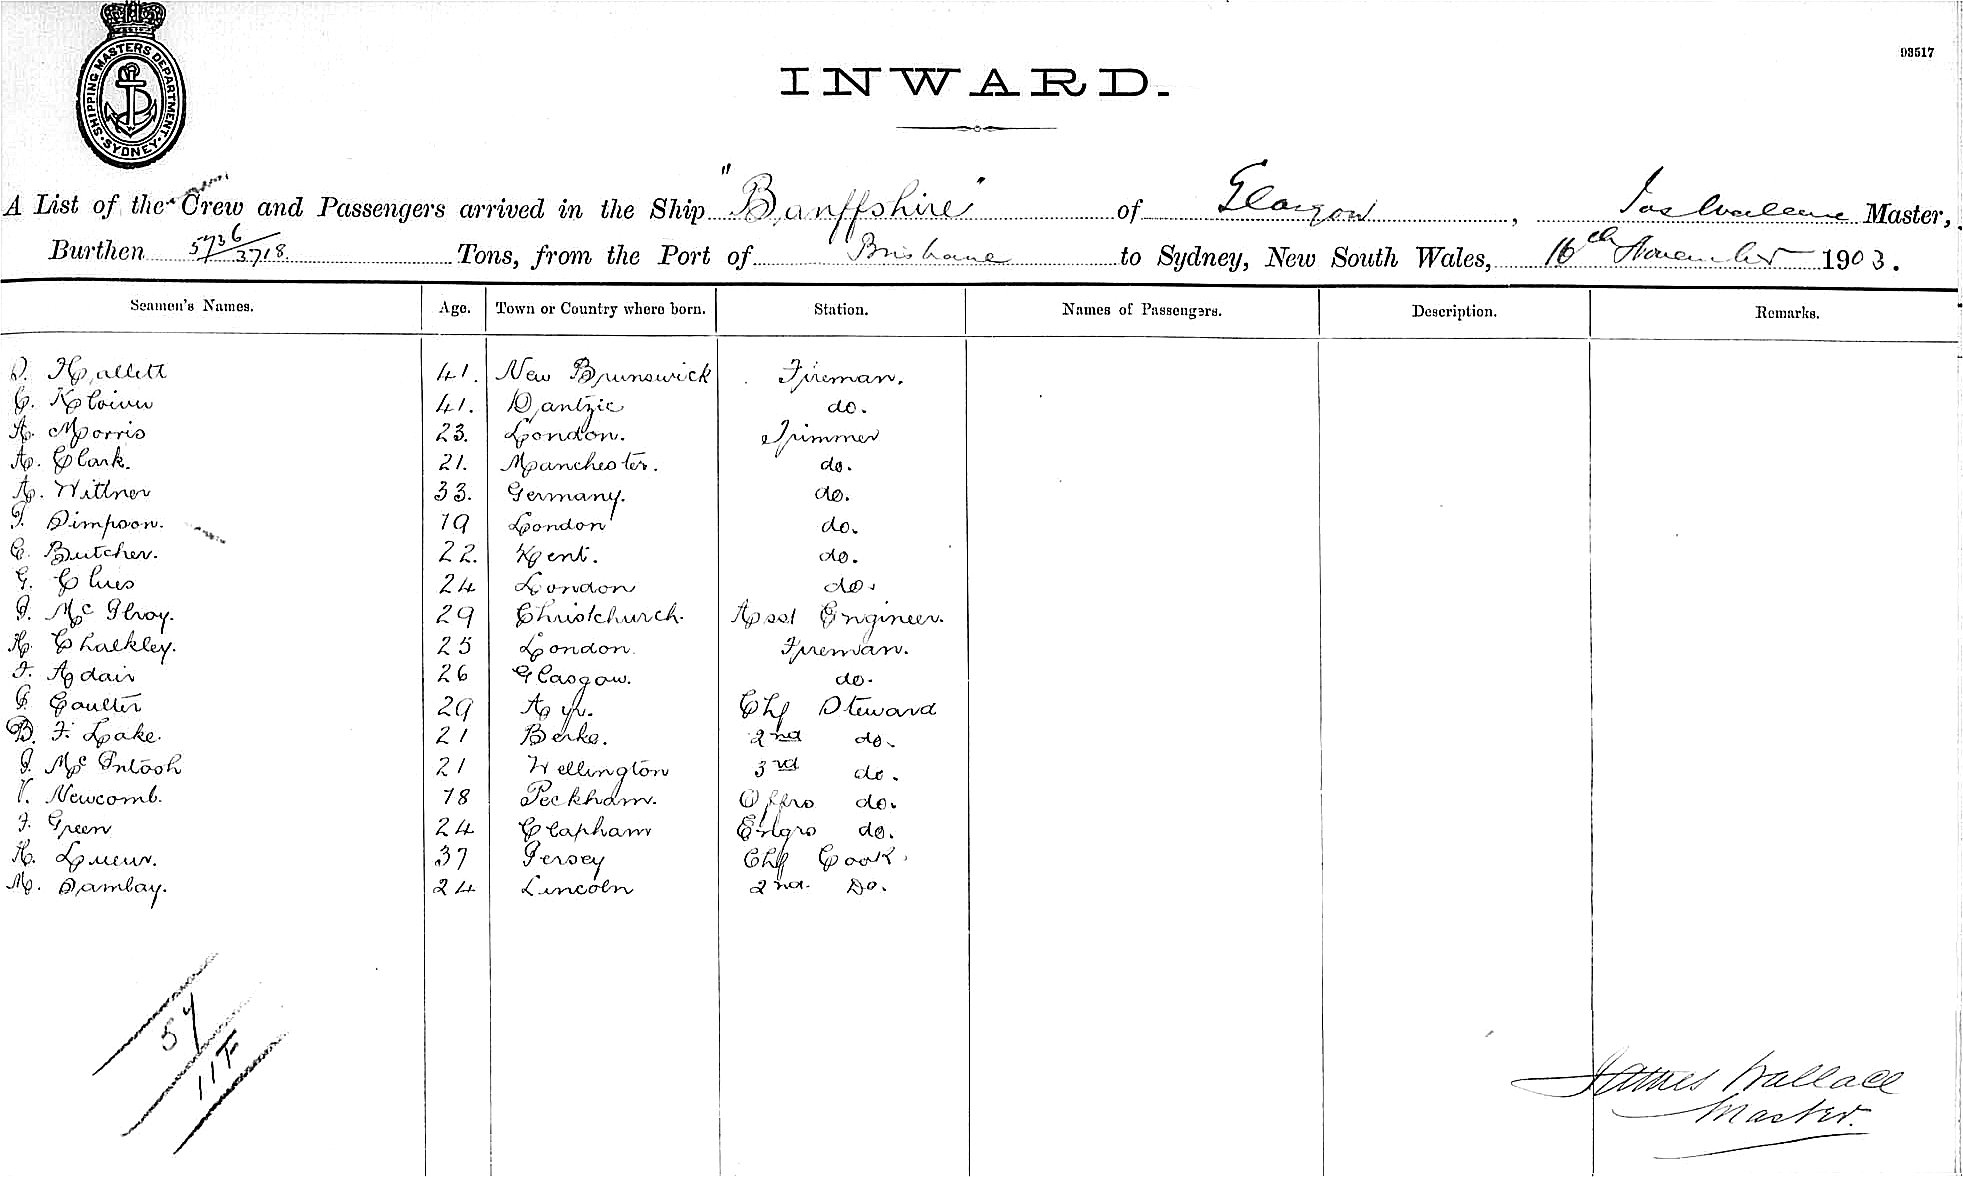 SHIPPING MASTERS DEPARTMENT. SYDNEY
93517
INWARD.
A List of the Crew and Passengers arrived in the Ship "Banffshire" of Glasgow, Jas Wallace Master,
Burthen 5736/3718. Tons, from the Port of Brisbane to Sydney, New South Wales, 16th November 1903.
Seamen's Names. Age. Town or Country where born. Station. Names of Passengers. Description. Remarks.
D. Hallett 41. New Brunswick Fireman.
C. 41. Dantzic do.
A. Morris 23. London. Trimmer
A. Clark. 21. Manchester. do.
A. Wittner 33. Germany. do.
T. Simpson. 19 London do.
E. Butcher. 22. Kent. do.
G. Clues 24 London do.
J. McIlroy. 29 Christchurch. Asst Engineer.
H. Chalkley. 25 London. Fireman.
F. Adair 26 Glasgow. do.
J. Coulter 29 Ayr. Chf Steward
B. F. Lake. 21 Berks. 2nd do.
J. McIntosh 21 Wellington 3rd do.
V. Newcomb. 18 Peckham. Offrs do.
F. Green 24 Clapham Engrs do.
H. 37 Jersey Chf Cook.
M. Sambay. 24 Lincoln 2nd. Do.
57
11F
James Wallace
Master.